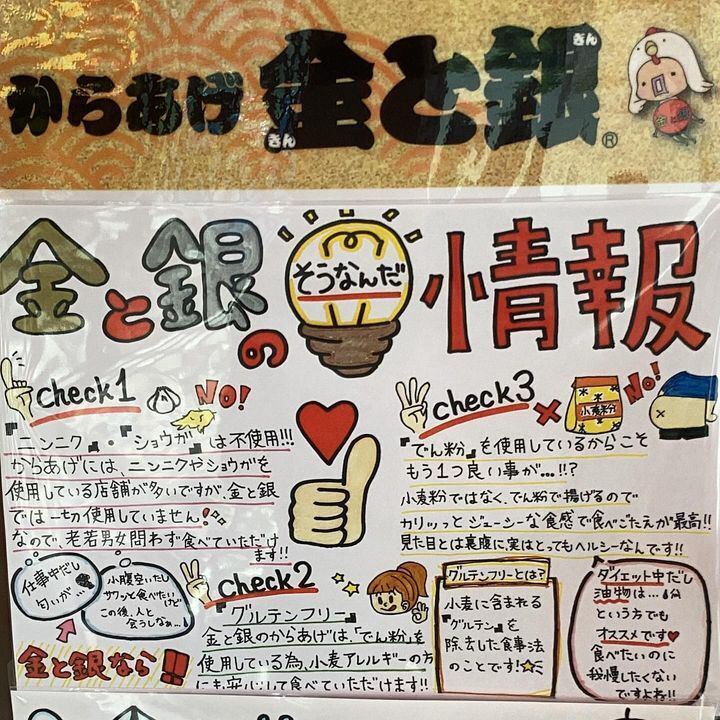 からあげ 金と銀
きん
ぎん
®
金と銀の
そうなんだ
情報
check1
NO!
『ニンニク』・『ショウガ』は不使用!!!
からあげには、ニンニクやショウガを
使用している店舗が多いですが、金と銀
では一切使用していません!
なので、老若男女問わず食べていただけ
ます!!
仕事中だし
匂いが…
小腹空いたし
サクッと食べたいけど
この後、人と
会うしなぁ…
金と銀なら!!
check2
『グルテンフリー』
金と銀のからあげは、『でん粉』を
使用している為、小麦アレルギーの方
にも安心して食べていただけます!!
check3
小麦粉
NO!
『でん粉』を使用しているからこそ
もう1つ良い事が…!!?
小麦粉ではなく、でん粉で揚げるので
カリッっとジューシーな食感で食べごたえが最高!!
見た目とは裏腹に実はとってもヘルシーなんです!!
グルテンフリーとは?
小麦に含まれる
『グルテン』を
除去した食事法
のことです!
ダイエット中だし
油物は…
という方でも
オススメです♥
食べたいのに
我慢したくない
ですよね!!